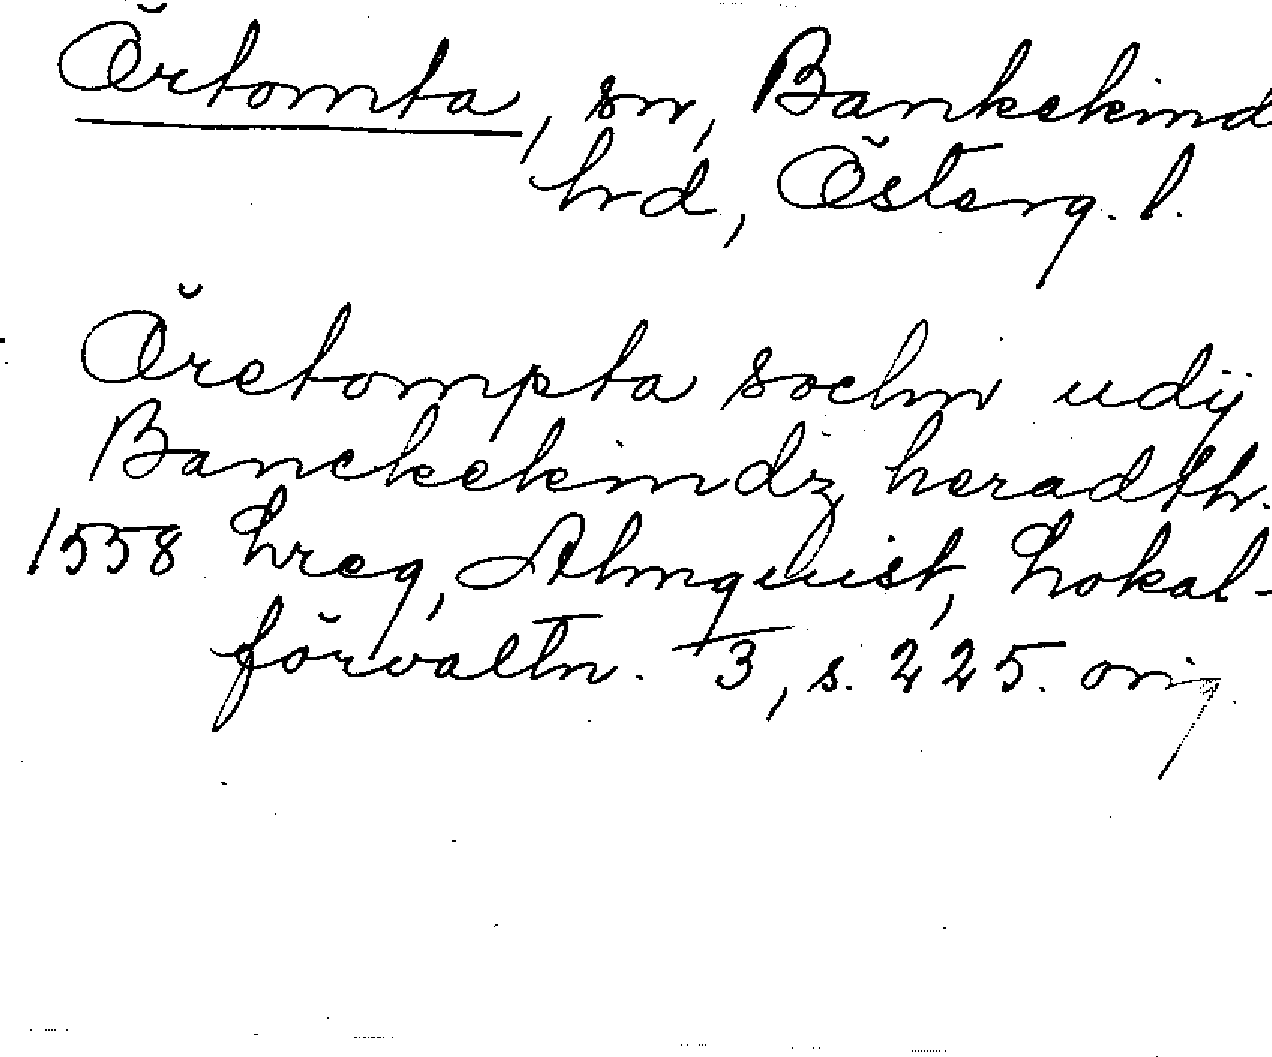 Örtomta, sn, Bankekind
hrd, Österg. l.
Öretompta sochn udij
Banckekindz heradth.
1558 hreg, Almquist, Lokal-
förvaltn. 3, s. 225. orig.